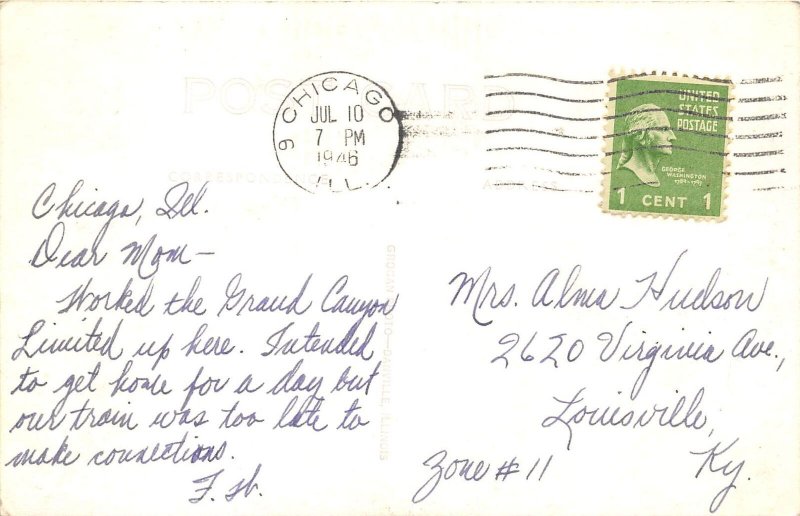 POST CARD
CHICAGO
9
JUL 10
7 PM
1946
ILL.
UNITED
STATES
POSTAGE
GEORGE
WASHINGTON
1789-1797
1 CENT 1
CORRESPONDENCE
ADDRESS
Chicago, Ill.
Dear Mom—
Worked the Grand Canyon
Limited up here. Intended
to get home for a day but
our train was too late to
make connections.
Mrs. Alma Hudson
2620 Virginia Ave.,
Louisville,
Zone #11 Ky.
DANVILLE, ILLINOIS